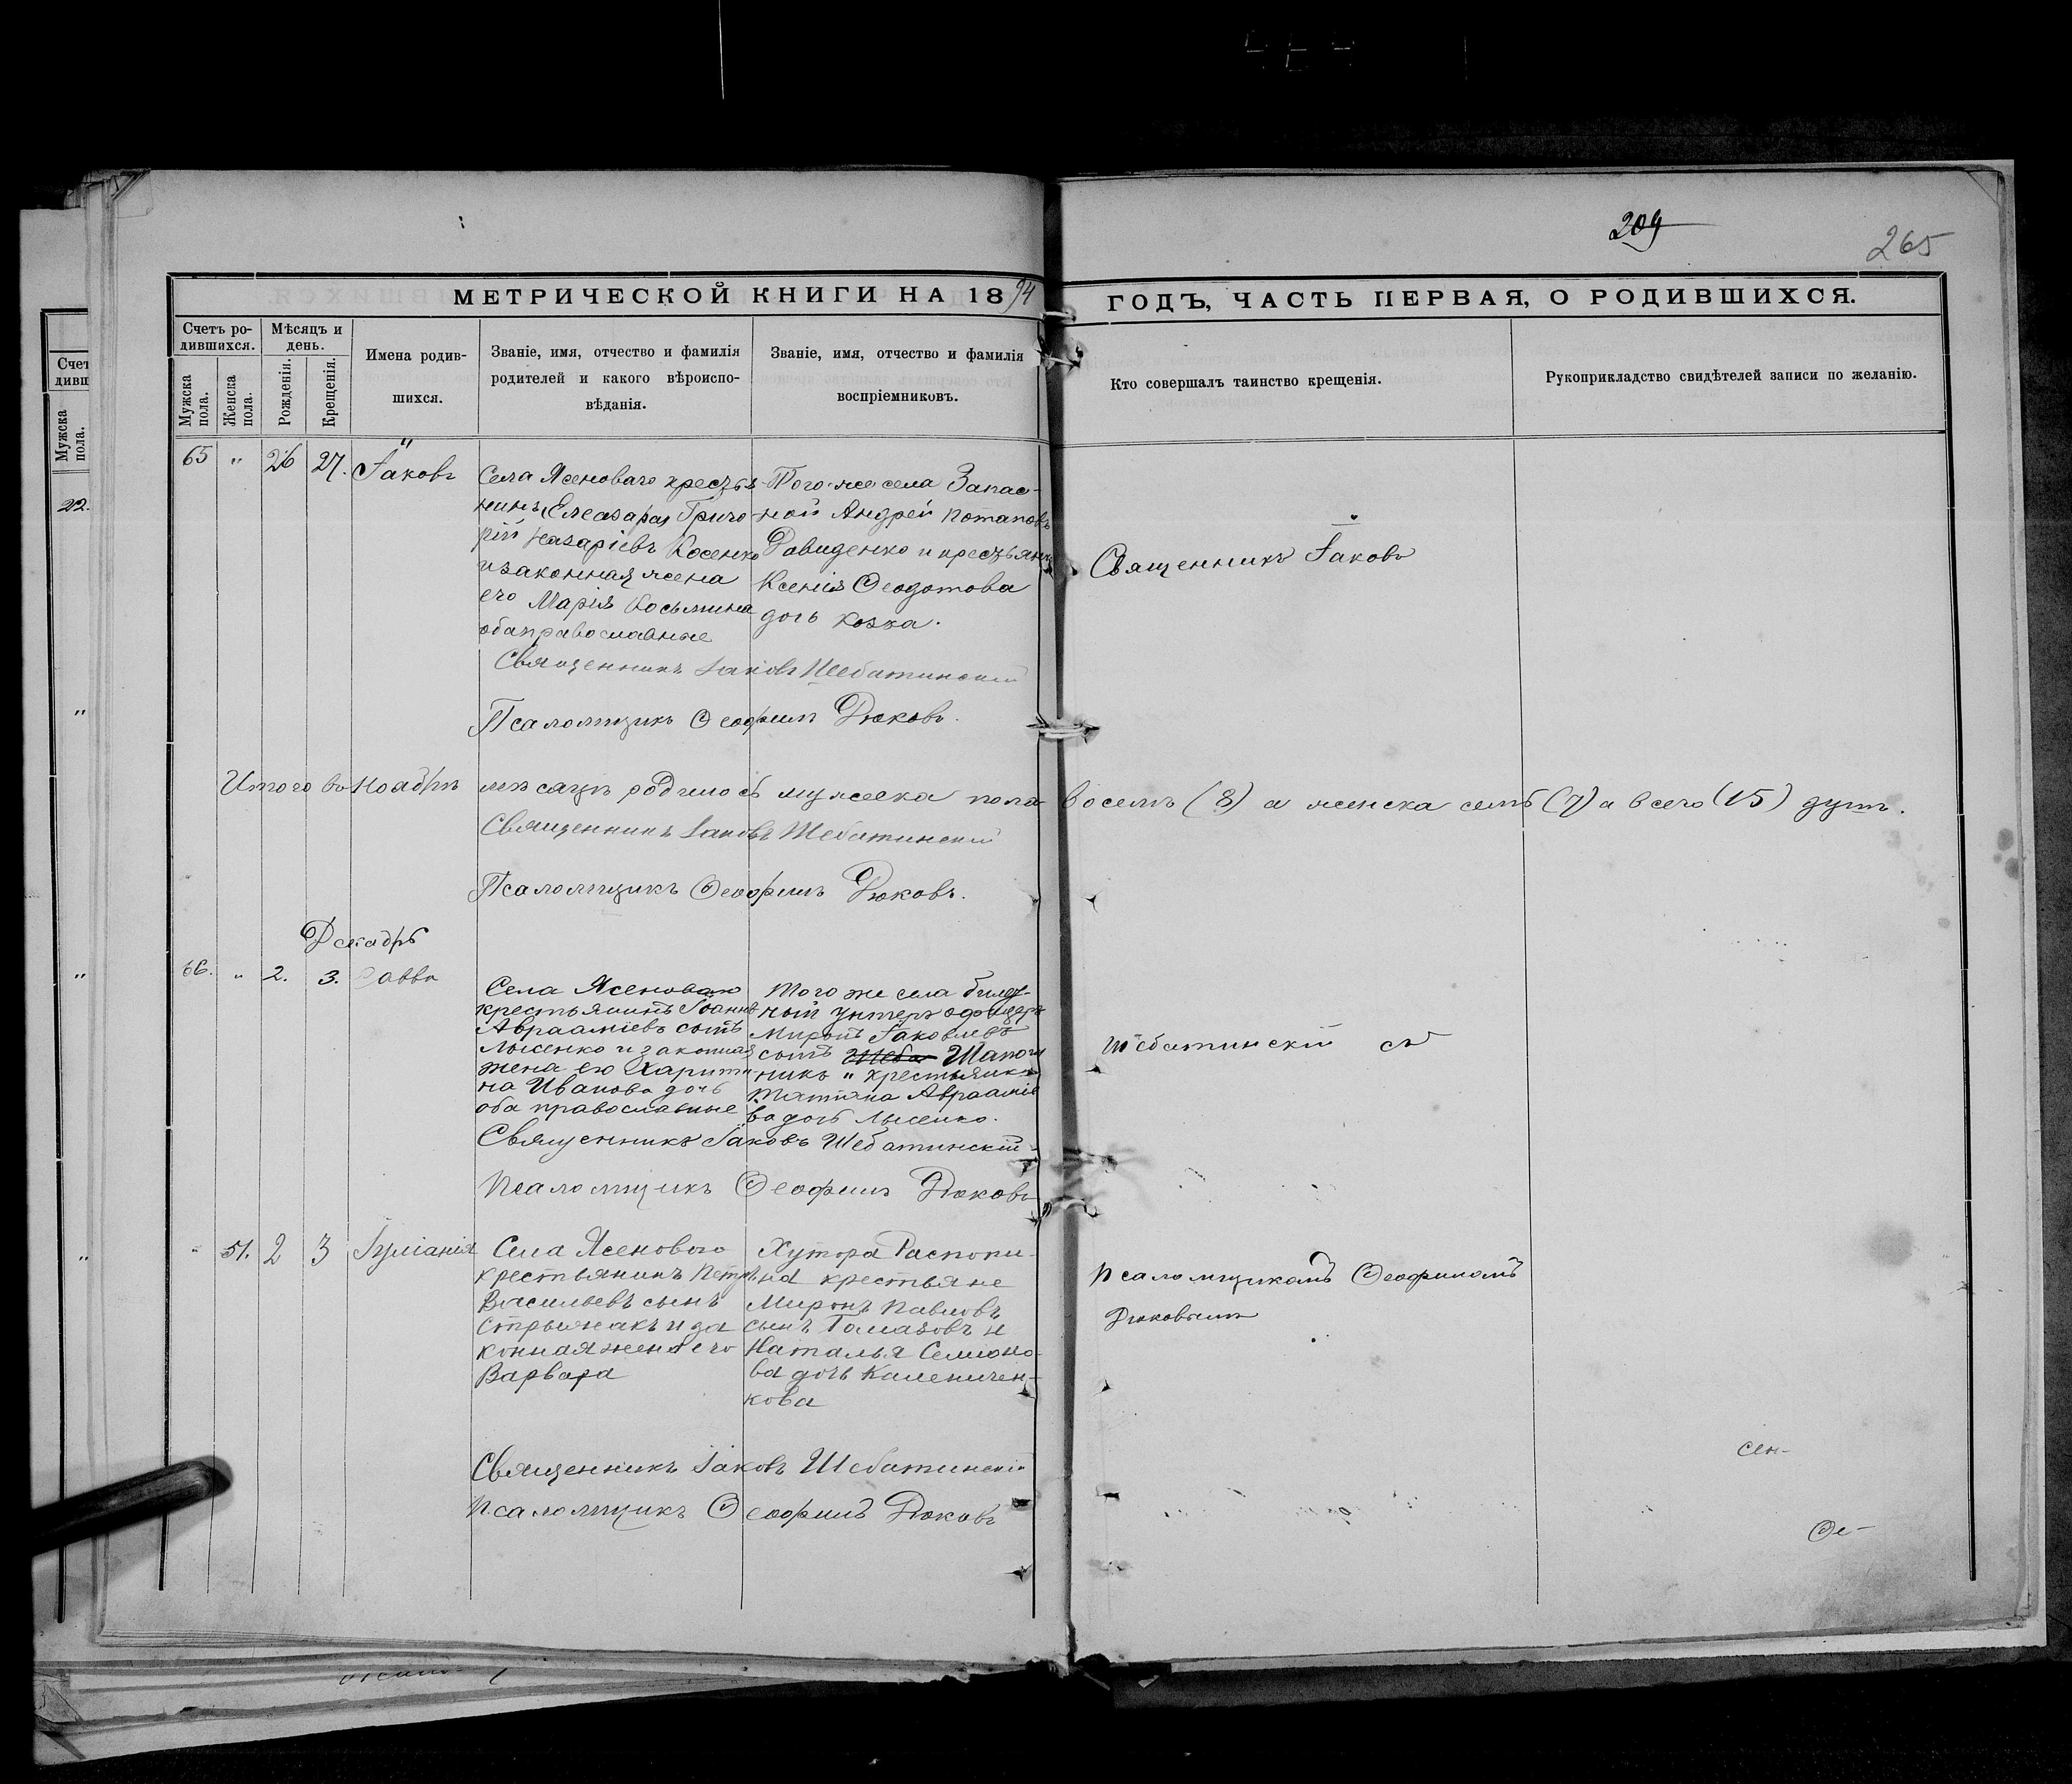 209
265
МЕТРИЧЕСКОЙ КНИГИ НА 1894 ГОДЪ, ЧАСТЬ ПЕРВАЯ, О РОДИВШИХСЯ.
Счетъ ро-
дившихся.
Мужска пола.
Женска пола.
Мѣсяцъ и
день.
Рожденія.
Крещенія.
Имена родив-
шихся.
Званіе, имя, отчество и фамилія
родителей и какого вѣроиспо-
вѣданія.
Званіе, имя, отчество и фамилія
воспріемниковъ.
Кто совершалъ таинство крещенія.
Рукоприкладство свидѣтелей записи по желанію.
65 " 26 27. Іаковъ
Села Ясеноваго крестья-
нинъ
Назаріевъ Косенко
и законная жена
его Марія Косьмина
оба православные
Того-же села Запас-
ной Андрей Потаповъ
Давиденко и крестьянка
Ксенія Ѳеодотова
дочь Козка.
Священникъ Іаковъ
Священникъ Іаковъ Шебатинскій
Псаломщикъ Ѳеофилъ Дюковъ.
Итого въ Ноябрѣ мѣсяцѣ родилось мужеска пола восемь (8) а женска семь (7) а всего (15) душъ.
Священникъ Іаковъ Шебатинскій
Псаломщикъ Ѳеофилъ Дюковъ.
Декабрь
66. " 2. 3. Савва
Села Ясеноваго
крестьянинъ Іоаннъ
Авраамiевъ сынъ
Лысенко и законная
жена его Харити
на Иванова дочь
оба православные
Того же села
унтеръ офицеръ
Миронъ Іаковлевъ
сынъ Шеба Шапош
никъ " крестьянка
Татіана Авраамiе
ва дочь Лысенко.
Шебатинскій съ
Священникъ Іаковъ Шебатинскій
Псаломщикъ Ѳеофилъ Дюковъ
" 51. 2 3 Іуліанія
Села Ясенового
крестьянинъ Петръ
Васильевъ сынъ
Стрыжакъ и за
конная жена его
Варвара
Хутора Распопи-
на крестьяне
Миронъ Павловъ
сынъ Томазовъ и
Наталья Семіоно-
ва дочь Каленичен-
кова
Псаломщикомъ Ѳеофиломъ
Дюковымъ
Священникъ Іаковъ Шебатинскій
Псаломщикъ Ѳеофилъ Дюковъ
сен-
Ѳе-
Счет
дивш
Мужска пола.
22.